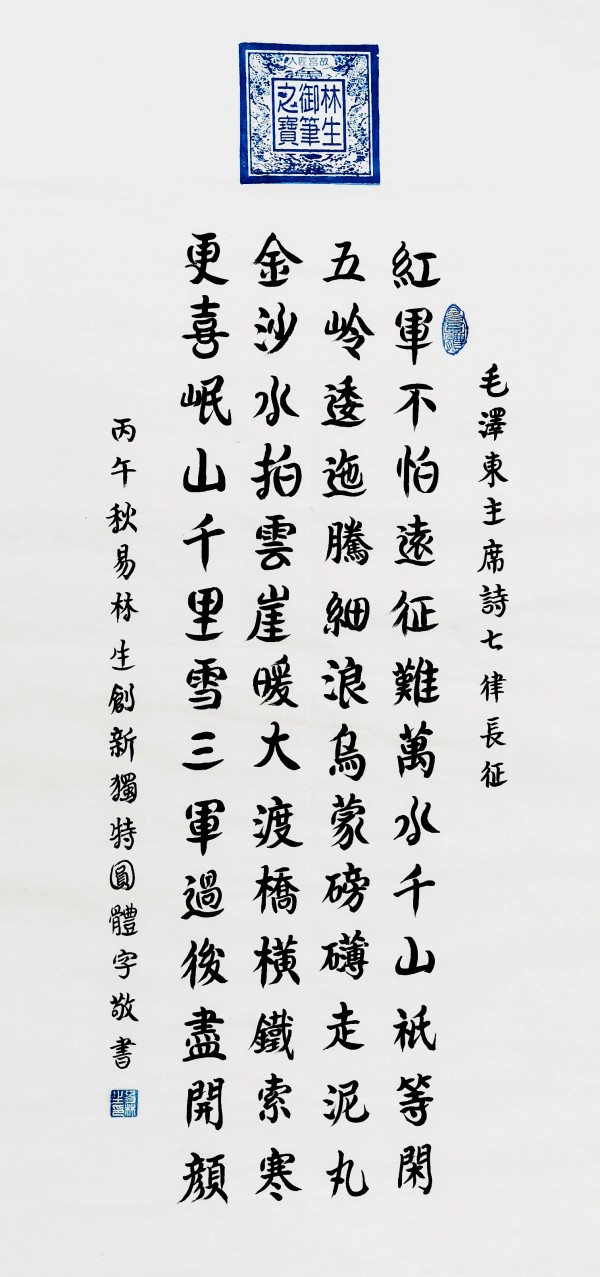 故宮匠人
林生
御筆
之寶
毛澤東主席詩七律長征
紅軍不怕遠征難萬水千山祇等閑
五岭逶迤騰細浪烏蒙磅礴走泥丸
金沙水拍雲崖暖大渡橋橫鐵索寒
更喜岷山千里雪三軍過後盡開顏
丙午秋易林生創新獨特圓體字敬書